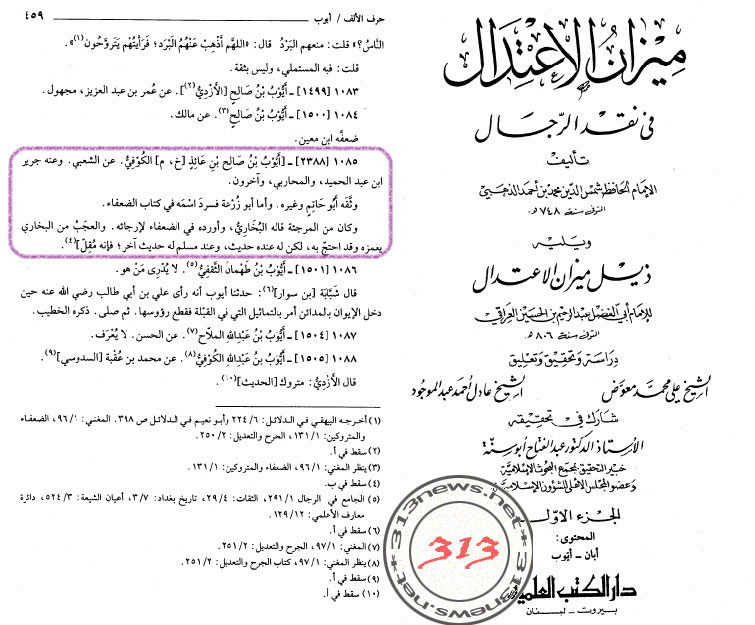 ميزان الاعتدال
في نقد الرجال
تأليف
الإمام الحافظ شمس الدين محمد بن أحمد الذهبي
المتوفى سنة ٧٤٨ هـ
ويليه
ذيل ميزان الاعتدال
للإمام أبي الفضل عبد الرحيم بن الحسين العراقي
المتوفى سنة ٨٠٦ هـ
دراسة وتحقيق وتعليق
الشيخ علي محمد معوض الشيخ عادل أحمد عبد الموجود
شارك في تحقيقه
الأستاذ الدكتور عبد الفتاح أبو سنة
خبير التحقيق بمجمع البحوث الإسلامية
وعضو المجلس الأعلى للشؤون الإسلامية
الجزء الأول
المحتوى:
أبان - أيوب
دار الكتب العلمية
بيروت - لبنان
حرف الألف / أيوب ٤٥٩
النَّاسُ؟» قلت: منعهم البَرْدُ قال: «اللهم أَذْهِبْ عَنْهُمُ الْبَرْدَ؛ فَرَأَيْتُهم يَتَرَوَّحُون(١)».
قلت: فيه المستملي، وليس بثقة.
١٠٨٣ [١٤٩٩] - أَيُّوبُ بْنُ صَالِحٍ [الأَزْدِيُّ(٢)]. عن عُمر بن عبد العزيز، مجهول.
١٠٨٤ [١٥٠٠] - أَيُّوبُ بْنُ صَالِحٍ(٣). عن مالك.
ضعفَّه ابن معين.
١٠٨٥ [٢٣٨٨] - [أَيُّوبُ بْنُ صَالِحِ بْنِ عَائِذٍ [خ، م] الكُوفيُّ. عن الشعبي. وعنه جرير
ابن عبد الحميد، والمحاربي، وآخرون.
وثَّقه أَبُو حَاتِمٍ وغيره. وأما أبو زُرْعة فسردَ اسْمَه في كتاب الضعفاء.
وكان من المرجئة قاله البُخَارِيُّ، وأورده في الضعفاء لإرجائه. والعجَبُ من البخاري
يغمزه وقد احتجّ به، لكن له عنده حديث، وعند مسلم له حديث آخر؛ فإنه مُقِلّ](٤).
١٠٨٦ [١٥٠١] - أَيُّوبُ بْنُ طَهْمَانَ الثَّقفِيُّ(٥). لا يُدْرى مَنْ هو.
قال شَبَّابَة [بن سوار](٦): حدثنا أيوب أنه رأى علي بن أبي طالب رضي الله عنه حين
دخل الإيوان بالمدائن أمر بالتماثيل التي في القبْلة فقطع رؤوسها. ثم صلى. ذكره الخطيب.
١٠٨٧ [١٥٠٤] - أَيُّوبُ بْنُ عَبْدِاللهِ الملّاح(٧). عن الحسن. لا يُعْرَف.
١٠٨٨ [١٥٠٥] - أَيُّوبُ بْنُ عَبْدِاللهِ الكُوْفيُّ(٨). عن محمد بن عُقْبة [السدوسي](٩).
قال الأَزْدِيُّ: متروك [الحديث](١٠).
(١) أخرجه البيهقي في الدلائل: ٢٢٤/٦ وأبو نعيم في الدلائل ص ٣٩٨. المغني: ٩٦/١، الضعفاء
والمتروكين: ١٣١/١، الجرح والتعديل: ٢٥٠/٢.
(٢) سقط في أ.
(٣) ينظر المغني: ٩٦/١، الضعفاء والمتروكين: ١٣١/١.
(٤) سقط في ب.
(٥) الجامع في الرجال ٢٩١/١، الثقات: ٢٩/٤، تاريخ بغداد: ٣/٧، أعيان الشيعة: ٥٢٤/٣، دائرة
معارف الأعلمي: ١٢٩/١٢.
(٦) سقط في أ.
(٧) المغني: ٩٧/١، الجرح والتعديل: ٢٥١/٢.
(٨) ينظر المغني: ٩٧/١، كتاب الجرح والتعديل: ٢٥١/٢.
(٩) سقط في أ.
(١٠) سقط في أ.
313
313news.net*313news.net*